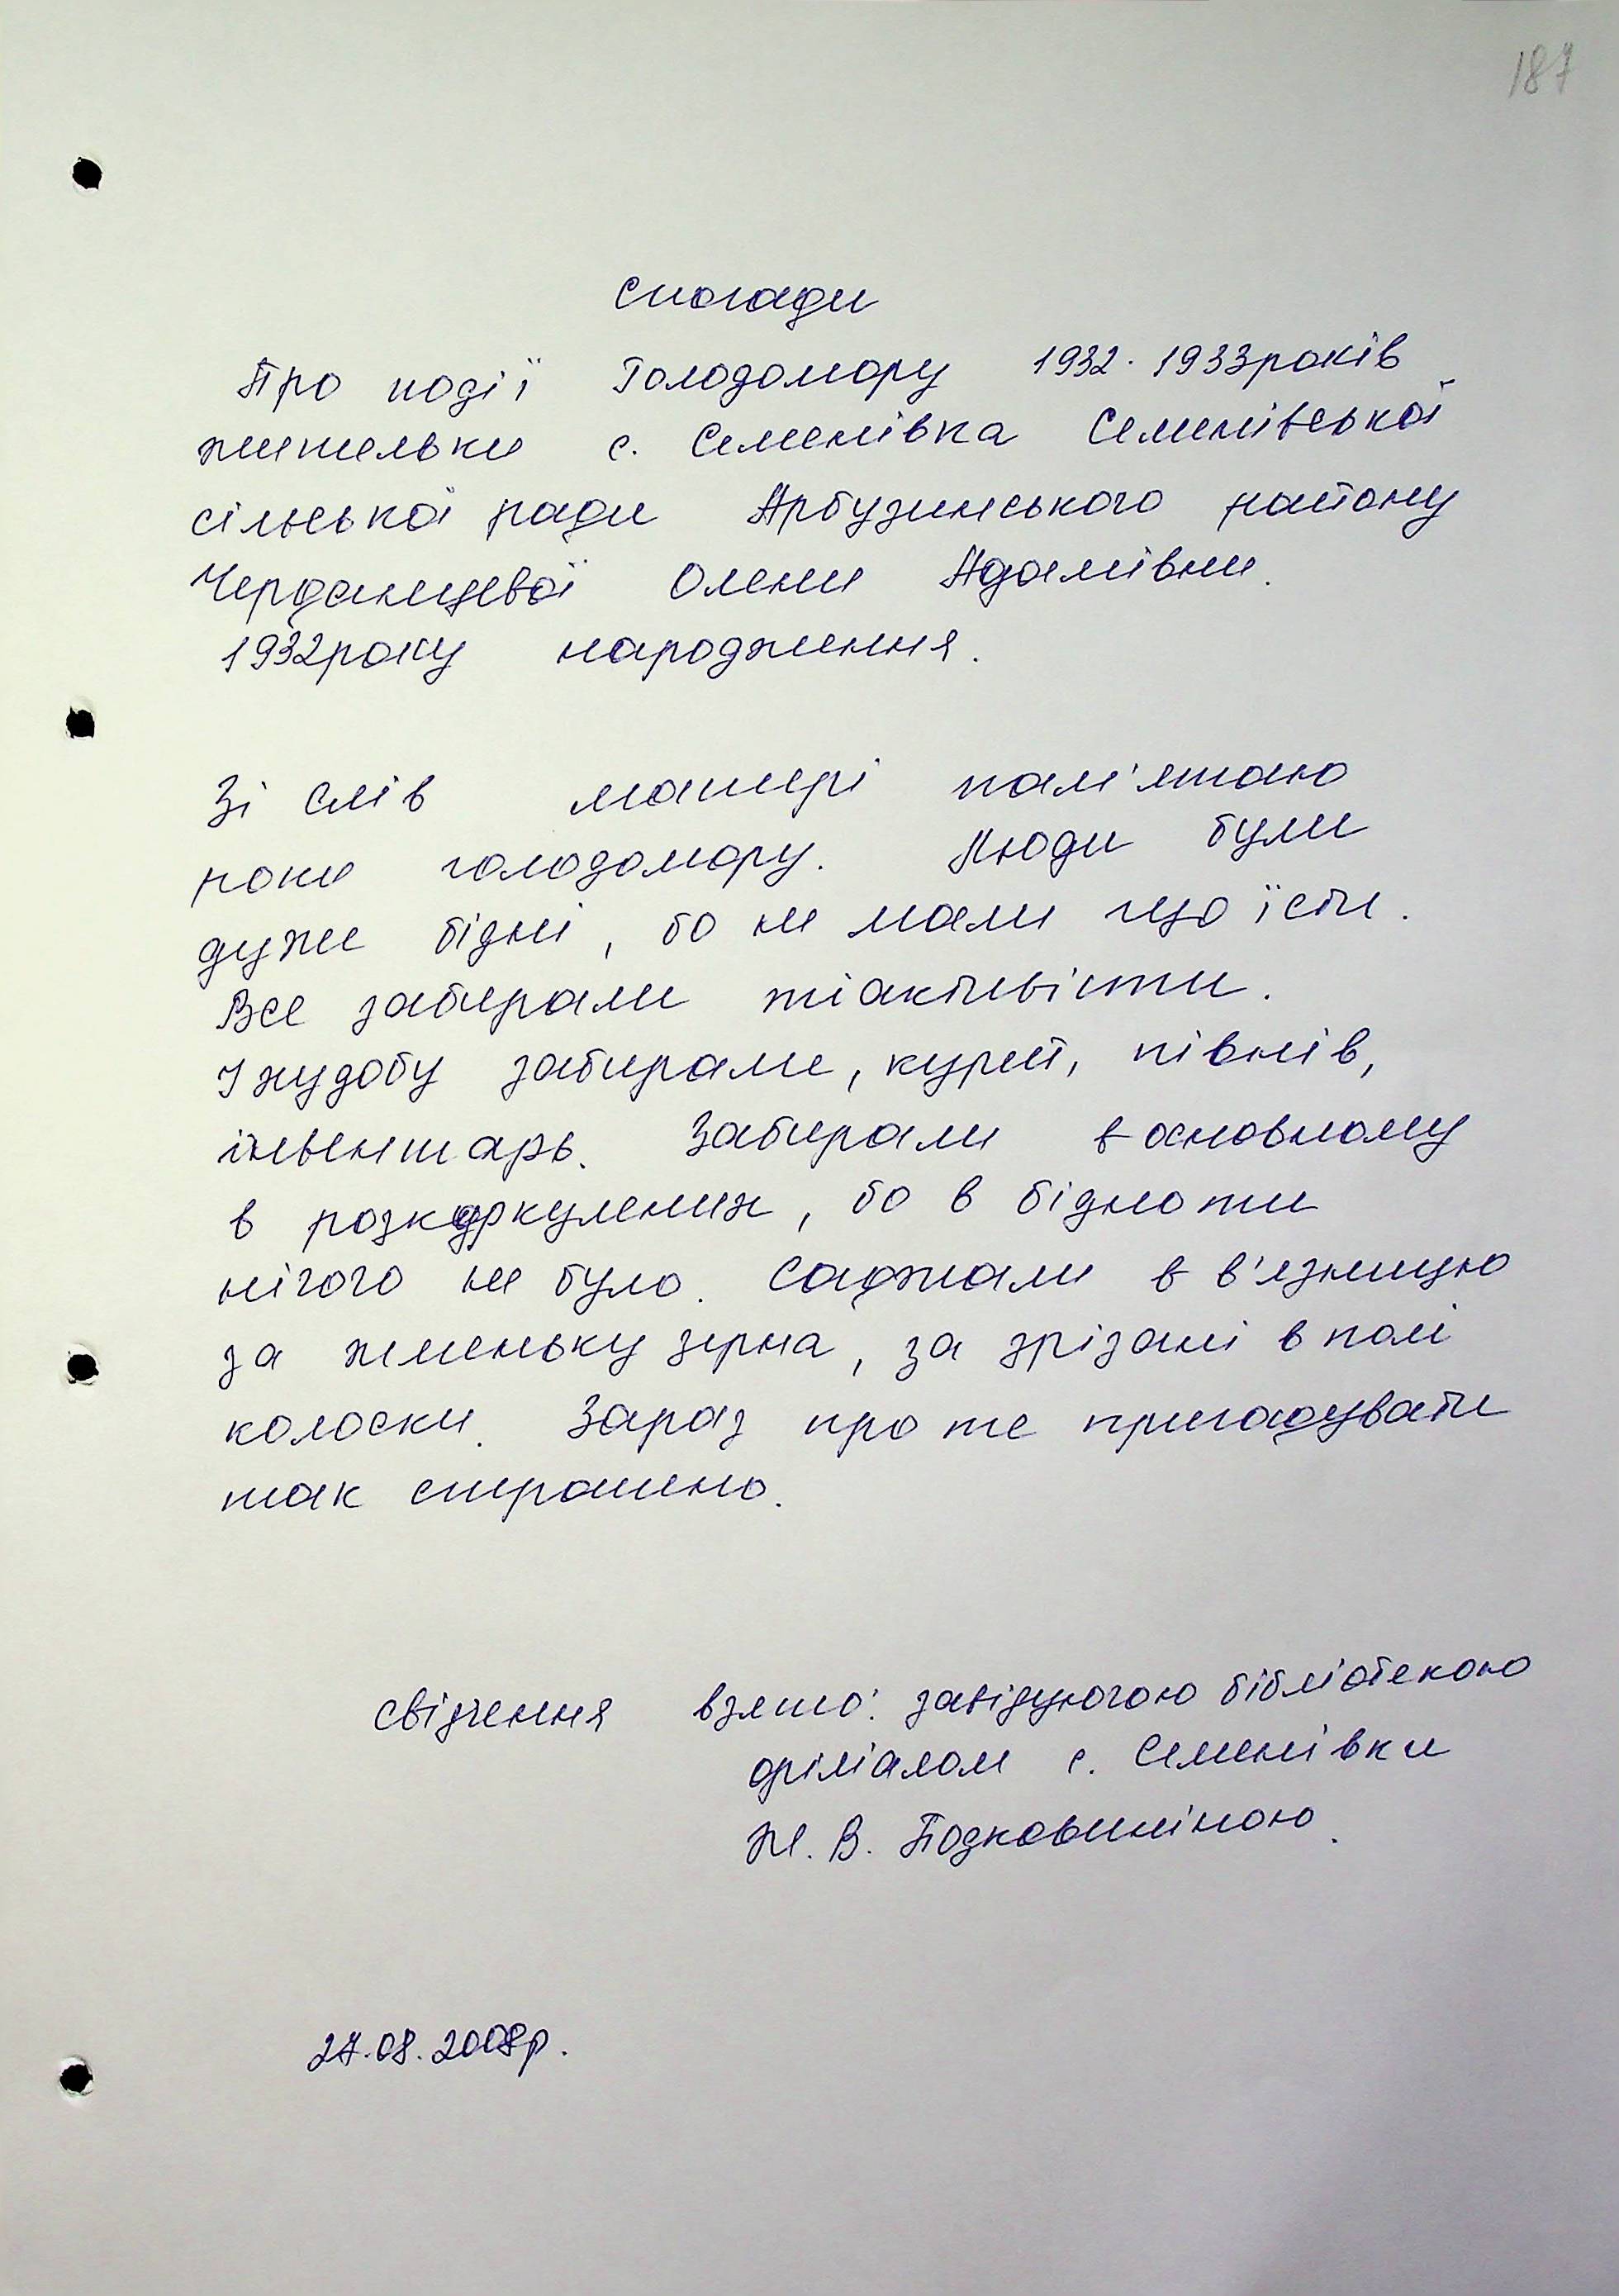 187
Спогади
Про події Голодомору 1932-1933років
жительки с. Семенівка Семенівської
сільської ради Арбузинського району
Черданцевої Олени Адамівни.
1932року народження.
Зі слів матері пам'ятаю
роки голодомору. Люди були
дуже бідні, бо не мали що їсти.
Все забирали ті активісти.
І худобу забирали, курей, півнів,
інвентарь. Забирали в основному
в розкуркулених, бо в бідноти
нічого не було. Саджали в в'язницю
за жменьку зерна, за зрізані в полі
колоски. Зараз про те пригадувати
так страшно.
Свідчення взято: завідуючою бібліотекою
філіалом с. Семенівки
Ж. В. Подковиліною.
27.08.2008р.